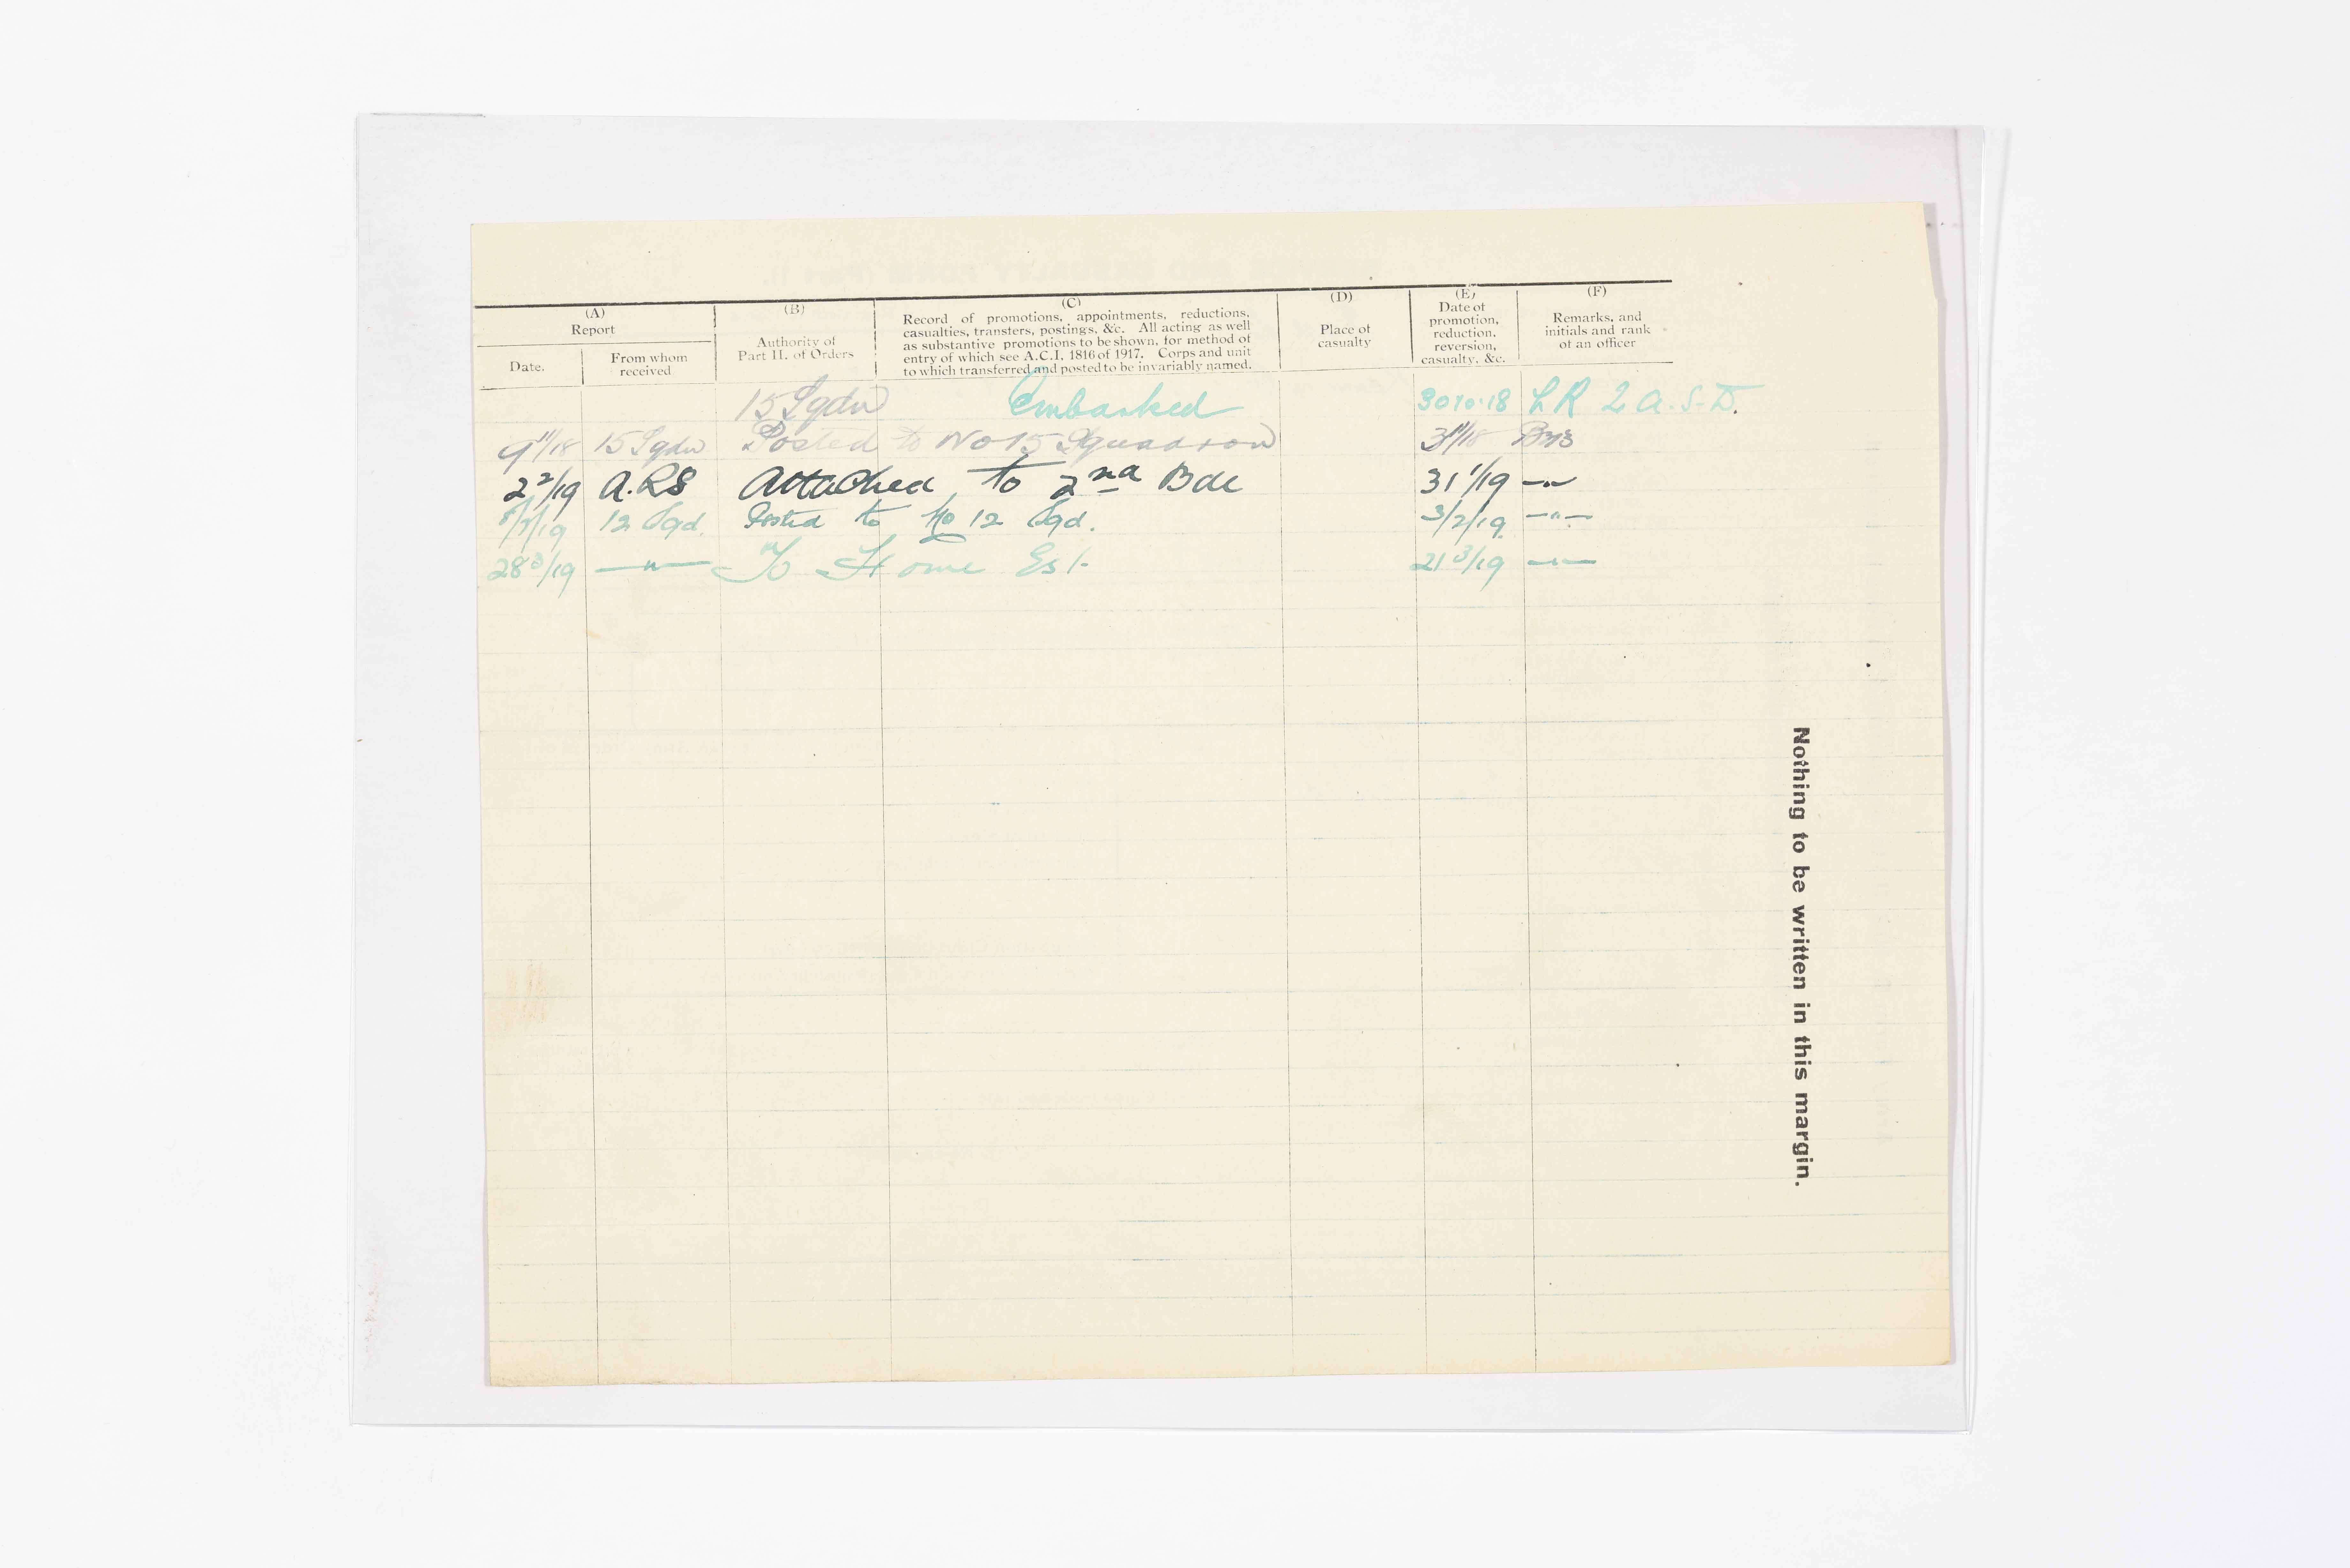 (A)
Report
Date.
From whom
received
(B)
Authority of
Part II. of Orders
(C)
Record of promotions, appointments, reductions,
casualties, transfers, postings, &c. All acting as well
as substantive promotions to be shown, for method of
entry of which see A.C.I. 1816 of 1917. Corps and unit
to which transferred and posted to be invariably named.
(D)
Place of
casualty
(E)
Date of
promotion,
reduction,
reversion,
casualty, &c.
(F)
Remarks, and
initials and rank
of an officer
15 Sqdn Embarked 30 10.18 LR 2 A.S.D.
9 11/18 15 Sqdn Posted to No 15 Squadron 3 11/18 B213
2 2/19 A.RS Attached to 2nd Bde 31 1/19 -"-
12 Sqd. Posted to No 12 Sqd. 3/2/19. -"-
28 3/19 -"- To Home Est. 21 3/19 -"-
Nothing to be written in this margin.